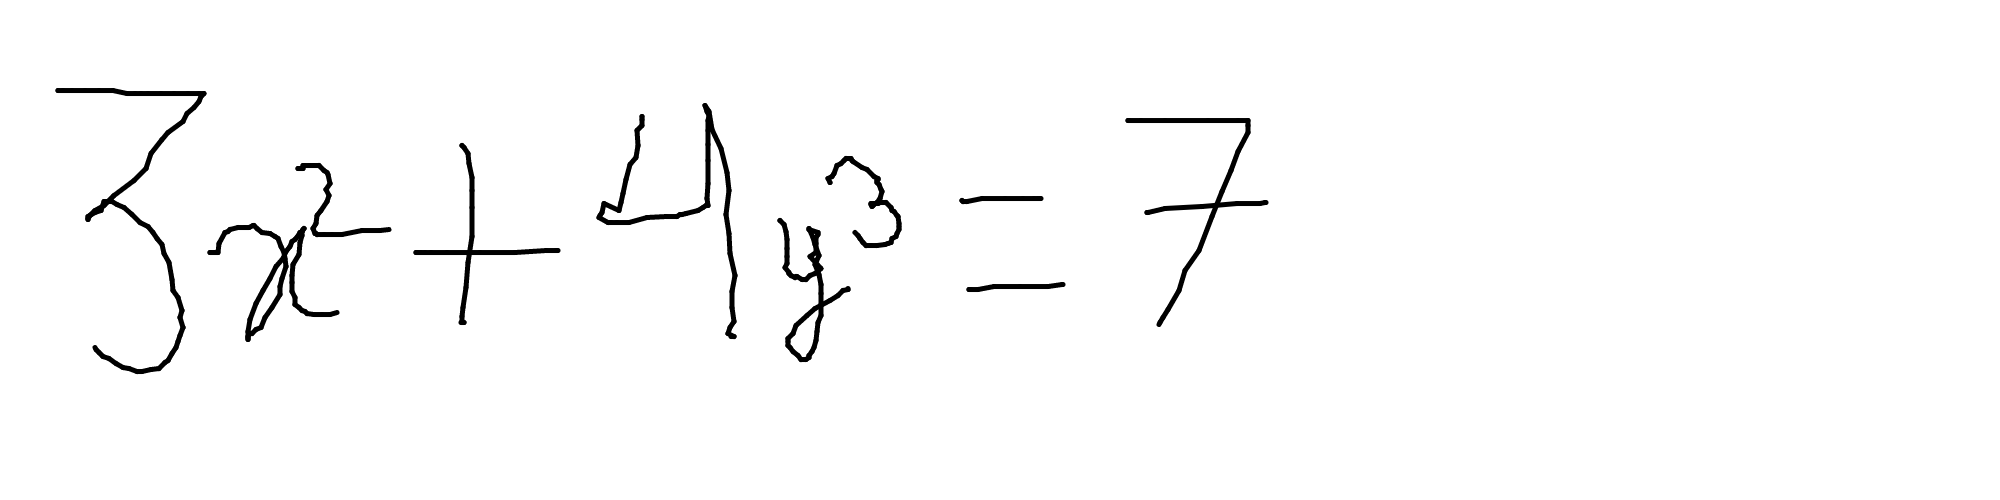 3x² + 4y³ = 7